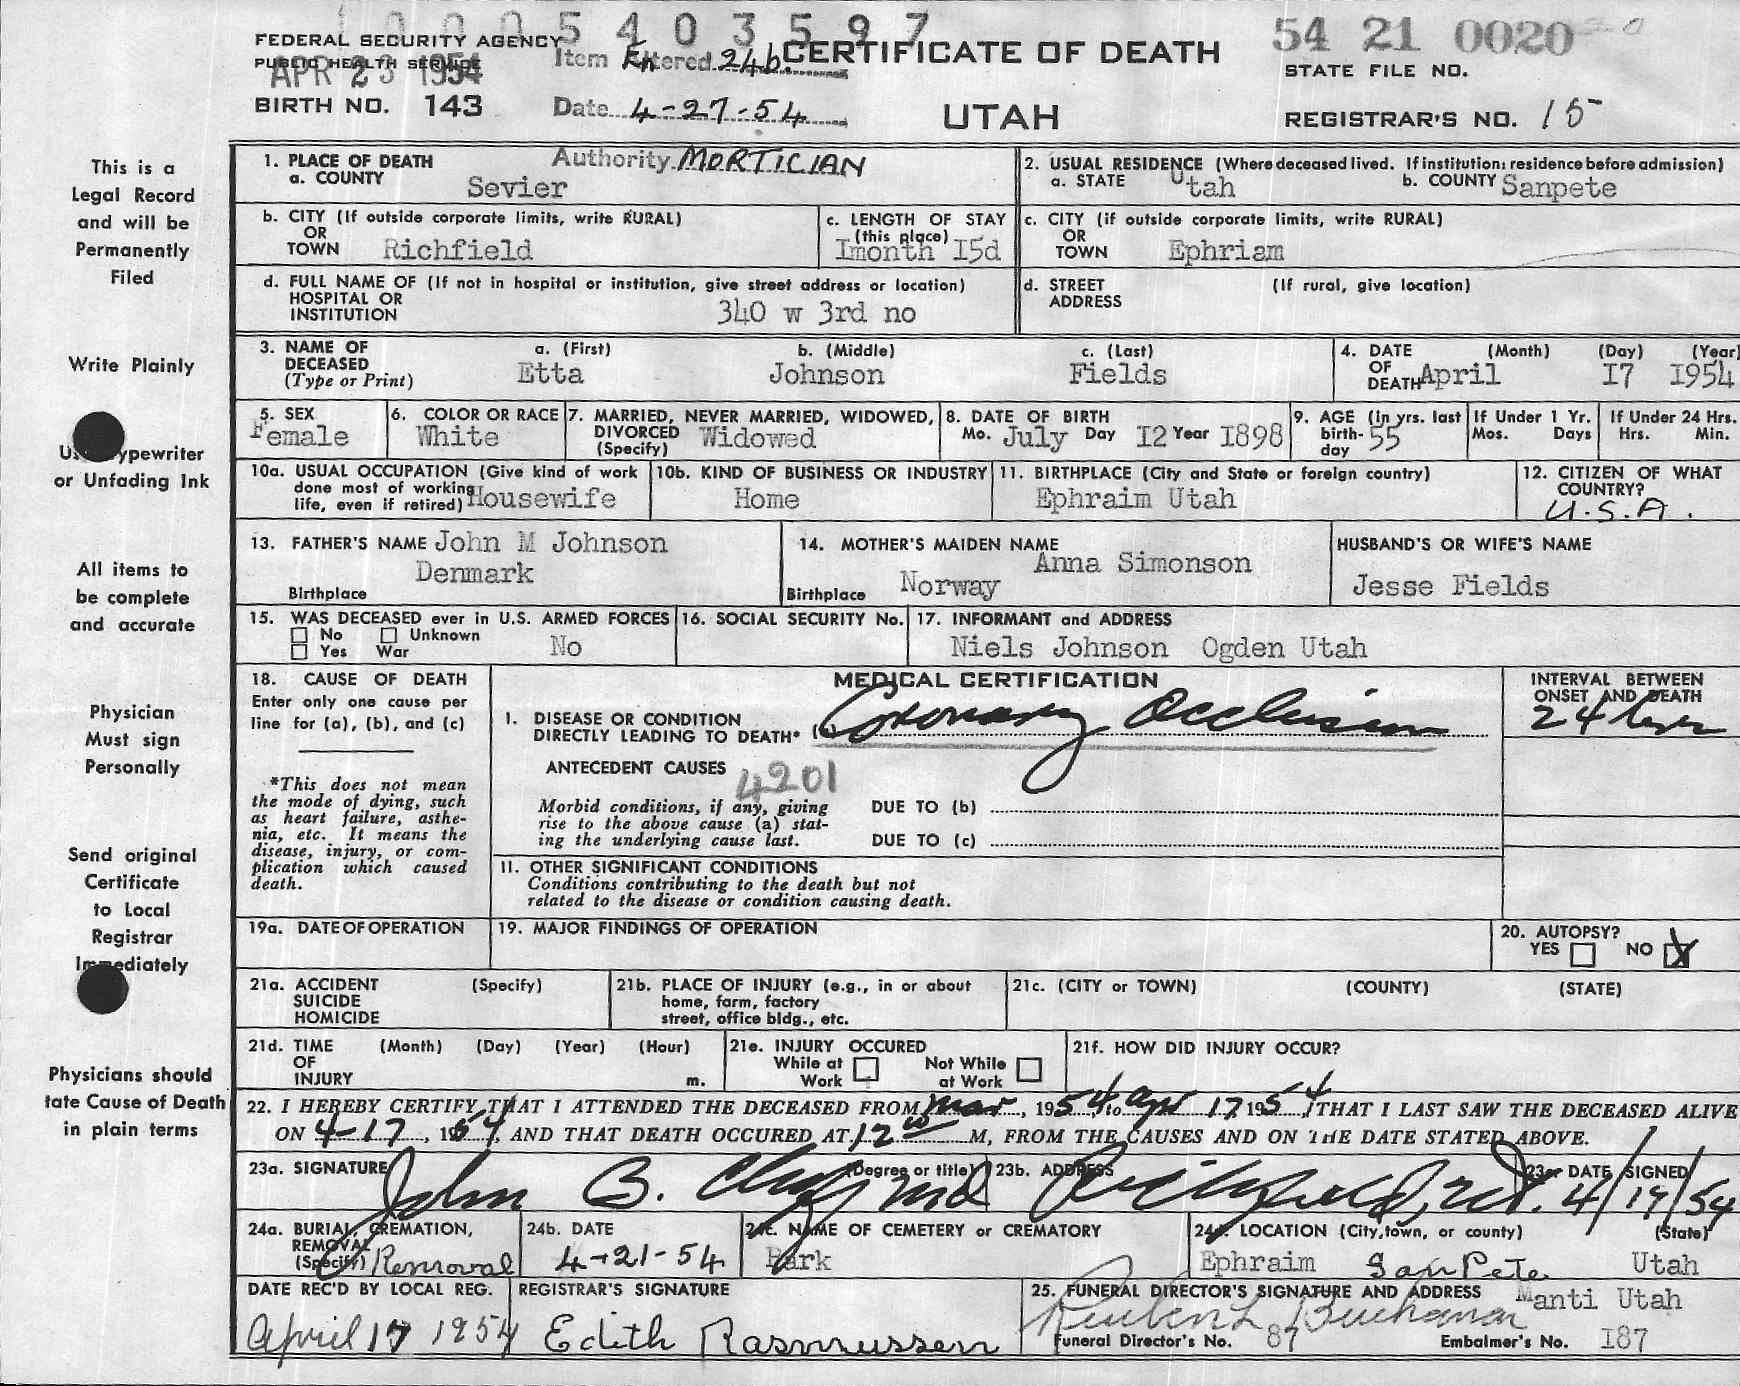 0005403597
FEDERAL SECURITY AGENCY
PUBLIC HEALTH SERVICE
APR 23 1954
BIRTH NO. 143
Item Entered 24b.
Date 4-27-54
Authority MORTICIAN
CERTIFICATE OF DEATH
UTAH
54 21 0020
STATE FILE NO.
REGISTRAR'S NO. 15
This is a
Legal Record
and will be
Permanently
Filed
Write Plainly
Use Typewriter
or Unfading Ink
All items to
be complete
and accurate
Physician
Must sign
Personally
Send original
Certificate
to Local
Registrar
Immediately
Physicians should
tate Cause of Death
in plain terms
1. PLACE OF DEATH
a. COUNTY Sevier
2. USUAL RESIDENCE (Where deceased lived. If institution: residence before admission)
a. STATE Utah b. COUNTY Sanpete
b. CITY (If outside corporate limits, write RURAL)
OR
TOWN Richfield
c. LENGTH OF STAY
(this place)
Imonth I5d
c. CITY (if outside corporate limits, write RURAL)
OR
TOWN Ephriam
d. FULL NAME OF (If not in hospital or institution, give street address or location)
HOSPITAL OR
INSTITUTION 340 w 3rd no
d. STREET (If rural, give location)
ADDRESS
3. NAME OF a. (First) b. (Middle) c. (Last)
DECEASED
(Type or Print) Etta Johnson Fields
4. DATE (Month) (Day) (Year)
OF
DEATH April I7 I954
5. SEX
Female
6. COLOR OR RACE
White
7. MARRIED, NEVER MARRIED, WIDOWED,
DIVORCED Widowed
(Specify)
8. DATE OF BIRTH
Mo. July Day I2 Year I898
9. AGE (in yrs. last
birth- 55
day
If Under 1 Yr.
Mos. Days
If Under 24 Hrs.
Hrs. Min.
10a. USUAL OCCUPATION (Give kind of work
done most of working
life, even if retired) Housewife
10b. KIND OF BUSINESS OR INDUSTRY
Home
11. BIRTHPLACE (City and State or foreign country)
Ephraim Utah
12. CITIZEN OF WHAT
COUNTRY?
U.S.A.
13. FATHER'S NAME John M Johnson
Denmark
Birthplace
14. MOTHER'S MAIDEN NAME
Anna Simonson
Birthplace Norway
HUSBAND'S OR WIFE'S NAME
Jesse Fields
15. WAS DECEASED ever in U.S. ARMED FORCES
No Unknown
Yes War No
16. SOCIAL SECURITY No.
17. INFORMANT and ADDRESS
Niels Johnson Ogden Utah
18. CAUSE OF DEATH
Enter only one cause per
line for (a), (b), and (c)
*This does not mean
the mode of dying, such
as heart failure, asthe-
nia, etc. It means the
disease, injury, or com-
plication which caused
death.
MEDICAL CERTIFICATION
I. DISEASE OR CONDITION
DIRECTLY LEADING TO DEATH* (a) Coronary Occlusion
INTERVAL BETWEEN
ONSET AND DEATH
24 hrs
ANTECEDENT CAUSES 4201
Morbid conditions, if any, giving
rise to the above cause (a) stat-
ing the underlying cause last.
DUE TO (b)
DUE TO (c)
11. OTHER SIGNIFICANT CONDITIONS
Conditions contributing to the death but not
related to the disease or condition causing death.
19a. DATE OF OPERATION
19. MAJOR FINDINGS OF OPERATION
20. AUTOPSY?
YES NO X
21a. ACCIDENT (Specify)
SUICIDE
HOMICIDE
21b. PLACE OF INJURY (e.g., in or about
home, farm, factory
street, office bldg., etc.
21c. (CITY or TOWN) (COUNTY) (STATE)
21d. TIME (Month) (Day) (Year) (Hour)
OF
INJURY m.
21e. INJURY OCCURED
While at Work
Not While at Work
21f. HOW DID INJURY OCCUR?
22. I HEREBY CERTIFY THAT I ATTENDED THE DECEASED FROM Mar, 1954 to Apr 17 1954, THAT I LAST SAW THE DECEASED ALIVE
ON 4-17, 1954, AND THAT DEATH OCCURED AT 12 00 M, FROM THE CAUSES AND ON THE DATE STATED ABOVE.
23a. SIGNATURE (Degree or title)
John B. MD
23b. ADDRESS
Richfield, Ut.
23c. DATE SIGNED
4/19/54
24a. BURIAL, CREMATION,
REMOVAL
(Specify) Removal
24b. DATE
4-21-54
24c. NAME OF CEMETERY or CREMATORY
Park
24d. LOCATION (City, town, or county) (State)
Ephraim SanPete Utah
DATE REC'D BY LOCAL REG.
April 17 1954
REGISTRAR'S SIGNATURE
Edith Rasmussen
25. FUNERAL DIRECTOR'S SIGNATURE AND ADDRESS Manti Utah
Reuben L Buchanan
Funeral Director's No. 87 Embalmer's No. I87